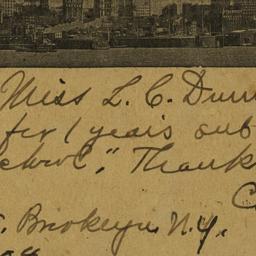 Miss L. C. Dunn
for 1 year's sub
," Thank
C
Brooklyn N.Y.